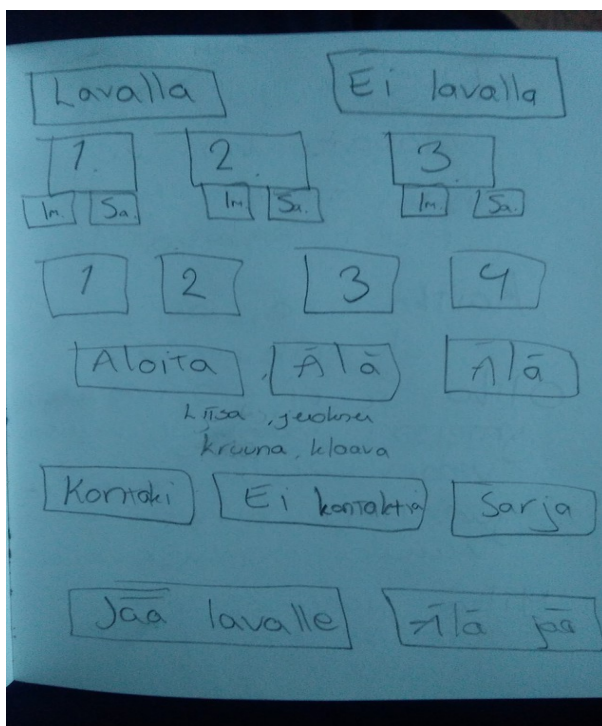 Lavalla Ei lavalla
1. 2. 3.
Im. Sa. Im. Sa. Im. Sa.
1 2 3 4
Aloita, Älä Älä
Liisa,
kruuna, klaava
Kontakti Ei kontaktia Sarja
Jää lavalle Älä jää